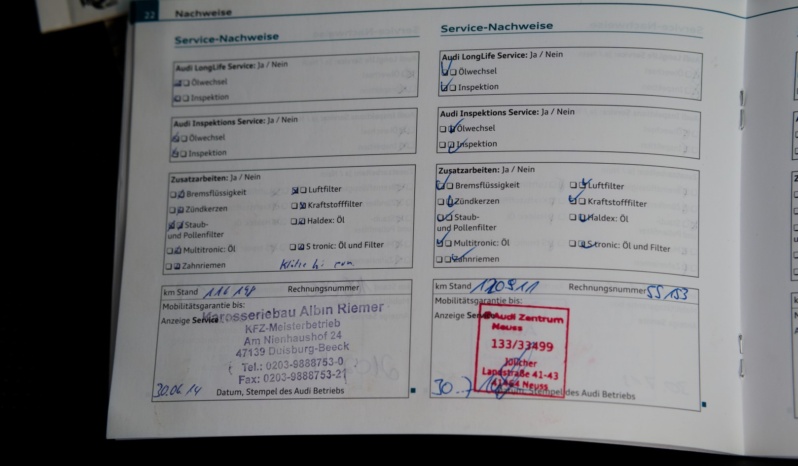 22 Nachweise
Service-Nachweise
Audi LongLife Service: Ja / Nein
Ölwechsel
Inspektion
Audi Inspektions Service: Ja / Nein
Ölwechsel
Inspektion
Zusatzarbeiten: Ja / Nein
Bremsflüssigkeit Luftfilter
Zündkerzen Kraftstofffilter
Staub- Haldex: Öl
und Pollenfilter
Multitronic: Öl S tronic: Öl und Filter
Zahnriemen
km Stand Rechnungsnummer
Mobilitätsgarantie bis:
Anzeige Service
Karosseriebau Albin Riemer
KFZ-Meisterbetrieb
Am Nienhaushof 24
47139 Duisburg-Beeck
Tel.: 0203-9888753-0
Fax: 0203-9888753-21
30.06 14
Datum, Stempel des Audi Betriebs
Service-Nachweise
Audi LongLife Service: Ja / Nein
Ölwechsel
Inspektion
Audi Inspektions Service: Ja / Nein
Ölwechsel
Inspektion
Zusatzarbeiten: Ja / Nein
Bremsflüssigkeit Luftfilter
Zündkerzen Kraftstofffilter
Staub- Haldex: Öl
und Pollenfilter
Multitronic: Öl S tronic: Öl und Filter
Zahnriemen
km Stand Rechnungsnummer
Mobilitätsgarantie bis:
Anzeige
Audi Zentrum
Neuss
133/33499
Jülicher
Landstraße 41-43
41464 Neuss
30.7
Stempel des Audi Betriebs